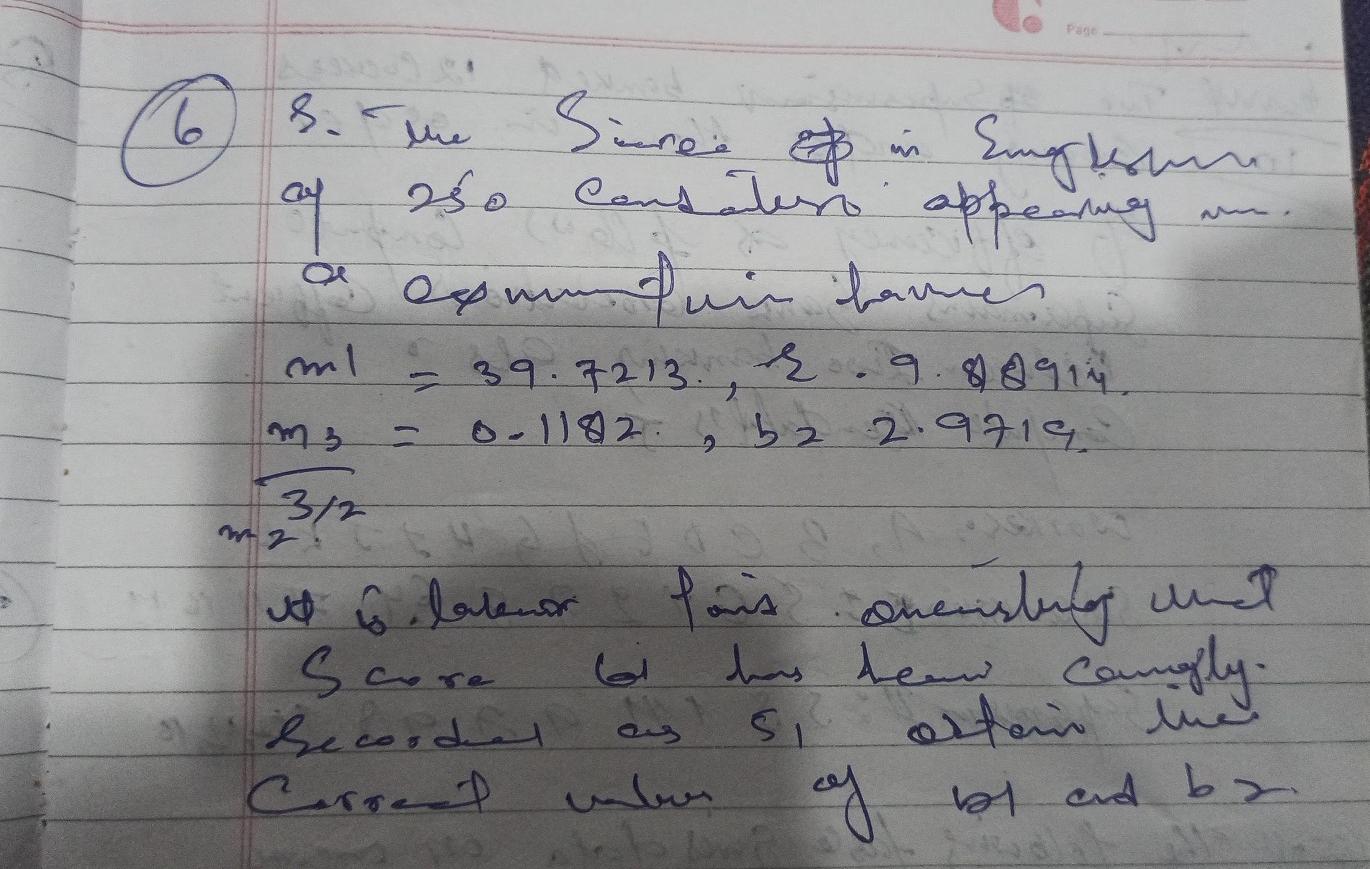 Page
6 8. The Scores in English
of 250 Candidates appearing in
a examination have
m1 = 39.7213., 9.
m3 = 0-1182. , b2 2.9719
3/2
m2
It is later found that
Score 61 has been wrongly
Recorded as 51 obtain the
Correct values of b1 and b2.